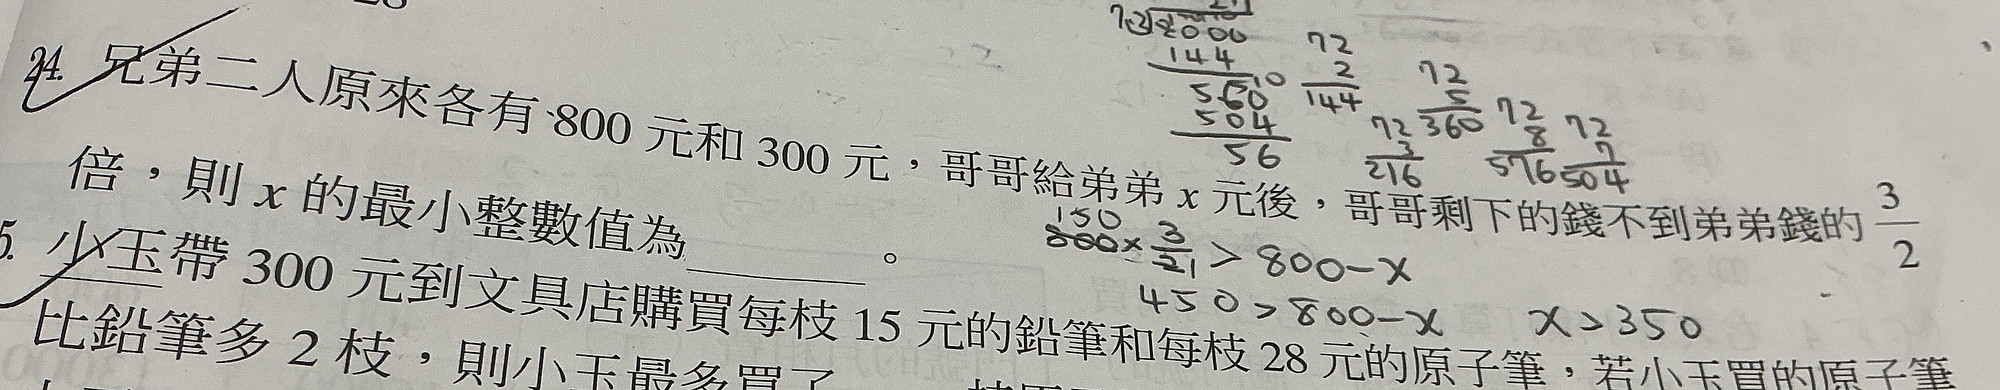 24. 兄弟二人原來各有 800 元和 300 元，哥哥給弟弟 x 元後，哥哥剩下的錢不到弟弟錢的 3/2
倍，則 x 的最小整數值為________。
5. 小玉帶 300 元到文具店購買每枝 15 元的鉛筆和每枝 28 元的原子筆，若小玉買的原子筆
比鉛筆多 2 枝，則小玉最多買了
2000
144
560
10
504
56
72
2
144
72
5
360
72
3
216
72
8
576
72
7
504
150
300 × 3/2 1 > 800-x
450 > 800-x
x > 350